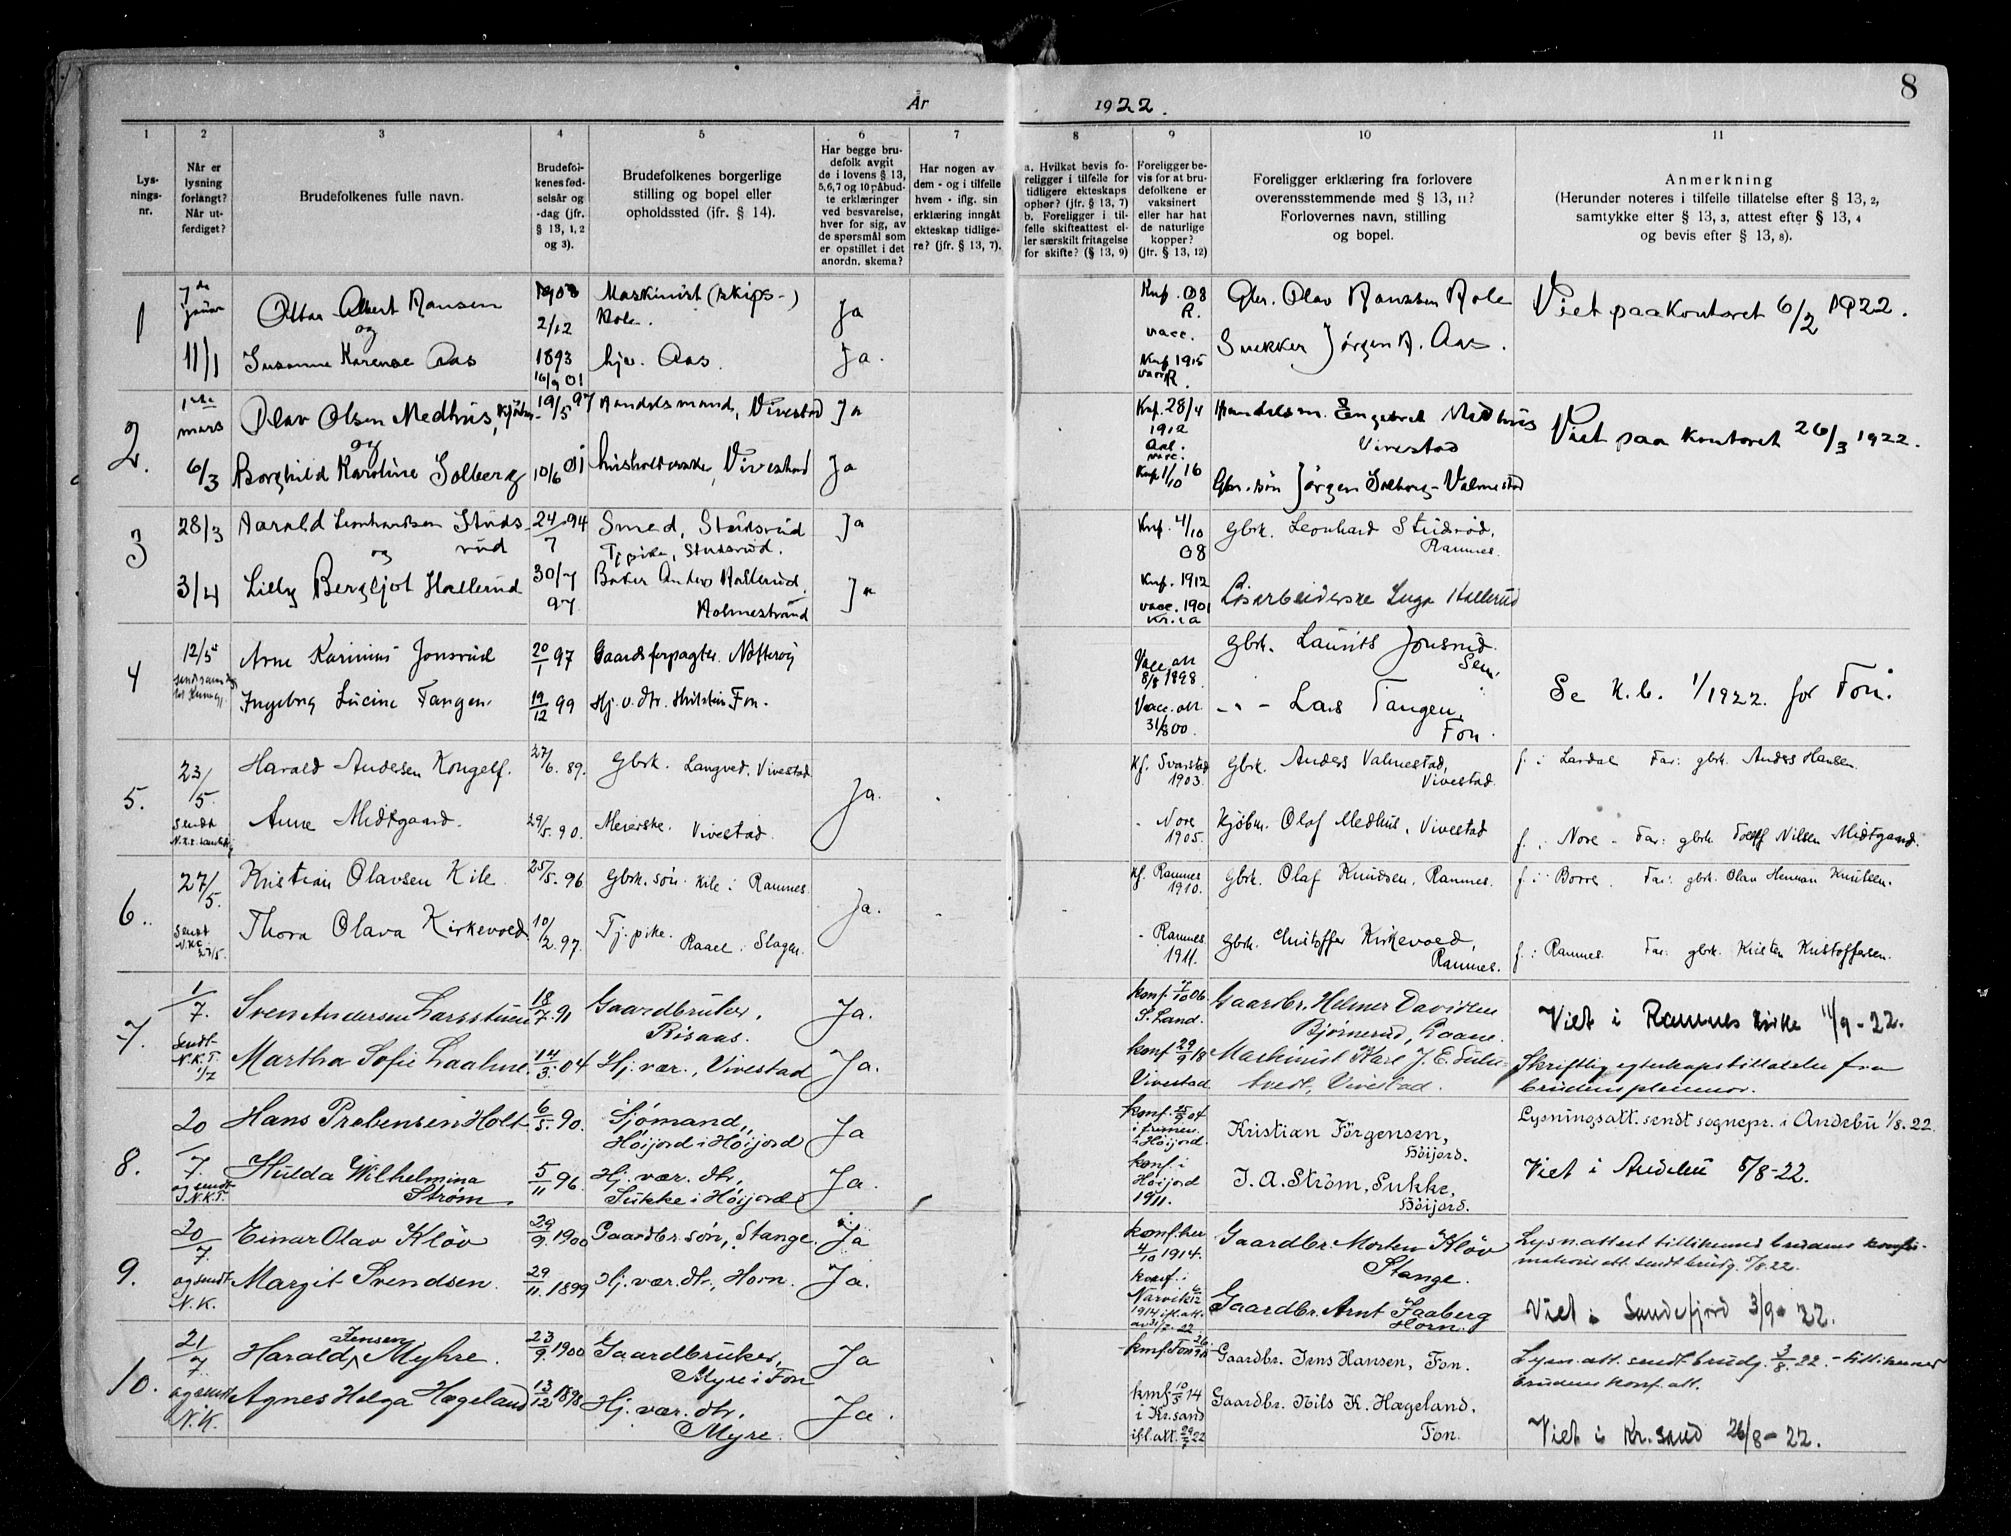 År 1922.
8
1 2 3 4 5 6 7 8 9 10 11
Lys-
nings-
nr.
Når er
lysning
forlangt?
Når ut-
ferdiget?
Brudefolkenes fulle navn.
Brudefol-
kenes fød-
selsår og
-dag (jfr.
§ 13, 1, 2
og 3).
Brudefolkenes borgerlige
stilling og bopel eller
opholdssted (jfr. § 14).
Har begge bru-
defolk avgit
de i lovens § 13,
5, 6, 7 og 10 påbud-
te erklæringer
ved besvarelse,
hver for sig, av
de spørsmål som
er opstillet i det
anordn. skema?
Har nogen av
dem - og i tilfelle
hvem - iflg. sin
erklæring inngåt
ekteskap tidlige-
re? (jfr. § 13, 7).
a. Hvilket bevis fo-
religger i tilfelle for
tidligere ekteskaps
ophør? (jfr. § 13, 7)
b. Foreligger i til-
felle skifteattest el-
ler særskilt fritagelse
for skifte? (§ 13, 9)
Foreligger be-
vis for at bru-
defolkene er
vaksinert
eller har hat
de naturlige
kopper?
(jfr. § 13, 12)
Foreligger erklæring fra forlovere
overensstemmende med § 13, 11?
Forlovernes navn, stilling
og bopel.
Anmerkning
(Herunder noteres i tilfelle tillatelse efter § 13, 2,
samtykke efter § 13, 3, attest efter § 13, 4
og bevis efter § 13, 8).
1
7de
Januar
11/1
Ottar Albert Hansen
og
Susanne Karense Aas
2/12
1893
16/9 01
Maskinist (skips-)
hjv. Aas.
Ja
Ja.
Knf. 08
R.
vacc.
Knf. 1915
vacc R.
Gbr. Olav Hansen
Snekker Jørgen A. Aas.
Viet paa kontoret 6/2 1922.
2.
1ste
mars
6/3
Olav Olsen Medhus,
og
Borghild Karoline Solberg
19/5 97
10/6 01
Handelsmand, Vivestad
husholderske, Vivestad
Ja
Ja
Knf. 28/4
1912
vacc.
Knf 1/10 16
Handelsm. Engebret Medhus
Vivestad
Gbr. søn Jørgen Solberg - Valmestad
Viet paa kontoret 26/3 1922.
3
28/3
3/4
Harald Leonhardsen Studs-
rud
og
Lilly Bergljot Hallerud
24/7 94
30/7
97
Smed, Studsrud
Tj pike, Studsrød.
Baker Anders Hallerud
Holmestrand
Ja
Ja
Knf. 4/10
08
Knf. 1912
vacc. 1901
Kr.ia
Gbrk. Leonhard Studsrød.
Ramnes.
Løsarbeiderske Inga Hallerud
4
12/5
Arne Karinius Jonsrud
Ingeborg Lucine Tangen.
20/1 97
19/12 99
Gaardsforpagter. Nøtterøy
Hj. v. dtr. Hvitstein Fon.
Vacc att
8/8 1898
Vacc. att
31/8 00.
Gbrk. Laurits Jonsrud.
Sem
- " - Lars Tangen,
Fon.
Se K.b. 1/1922. for Fon.
5.
23/5.
sendt
Harald Andersen Kongelf.
Anne Midtgaard.
27/6. 89.
29/5. 90.
Gbrk. Langved. Vivestad
Meierske. Vivestad.
Ja.
Kf. Svarstad
1903.
- Nore
1905.
Gbrk. Anders Valmestad,
Vivestad.
Kjøbm. Olaf Medhus, Vivestad
f. i Lardal Far: gbrk. Anders Hansen.
f. i Nore - Far: gbrk. Tolleff Nilsen Midtgaard.
6.
27/5.
sendt
N.K.C.
27/5.
Kristian Olavsen Kile.
Thora Olava Kirkevold.
25/5. 96
10/2. 97.
Gbrk. søn. Kile i Ramnes.
Tj. pike. Raael. Slagen.
Ja.
Kf. Ramnes
1910.
- Ramnes
1911.
Gbrk. Olaf Knudsen, Ramnes.
Gbrk. Christoffer Kirkevold,
Ramnes.
f. i Borre. Far: gbrk. Olav Herman Knutsen.
f. i Ramnes. Far: gbrk. Kristen Kristoffersen.
7.
1/7.
sendt
N.K.T.
1/7
Sven Andersen Larsstuen
Martha Sofie Laahne
18/7. 91
14/3. 04
Gaardbruker,
Risaas.
Hj. vær., Vivestad
Ja.
Ja.
konf. 7/10 06
S. Land.
konf 29/9 18
Vivestad
Gaardbr. Helmer Davidsen
Bjørnerud, Laane.
Maskinist Karl J. E. Sulu-
tvedt, Vivestad.
Viet i Ramnes kirke 11/9 - 22.
Skriftlig egteskapstillatelse fra
brudens pleiemor.
8.
20/7.
og sendt
I.N.K.T.
Hans Prebensen Holt
Hulda Wilhelmina
Strøm
6/5. 90.
5/11 96.
Sjømand,
Høijord i Høijord
Hj. vær. dtr.,
Sukke i Høijord
Ja
Ja.
konf. 25/9 04
Høijord.
konf. i
Høijord
1911.
Kristian Jørgensen,
Høijord.
J. A. Strøm, Sukke,
Høijord.
Lysningsatt. sendt sognepr. i Andebu 1/8. 22.
Viet i Andebu 5/8-22.
9.
20/7.
og sendt
N.K.
Einar Olav Kløv
Margit Svendsen.
29/9. 1900
29/11. 1899
Gaardbr. søn, Stange.
Hj. vær. dtr., Horn.
Ja
Ja.
konf. her
4/10 1914.
konf. i
Narvik
1914 ifl. att.
Gaardbr. Morten Kløv
Stange.
Gaardbr. Arnt Faaberg
Horn.
Lysn. attest tillikemed brudens konfir-
mations att. sendt brudg. 1/8. 22.
Viet i Sandefjord 3/9 - 22.
10.
21/7.
og sendt
N.K.
Jensen
Harald Myhre.
Agnes Helga Hægeland
23/9. 1900
13/12 1898
Gaardbruker,
Myre i Fon
Hj. vær. dtr.,
Myre.
Ja
Ja.
konf Fon
konf 10/5 14
i Kr.sand
ifl. att. 29/7 22
Gaardbr. Jens Hansen, Fon.
Gaardbr. Nils K. Hægeland,
Fon.
Lysn. att. sendt brudg. 3/8. 22. - tillikemed
brudens konf. att.
Viet i Kr.sand 26/8 - 22.